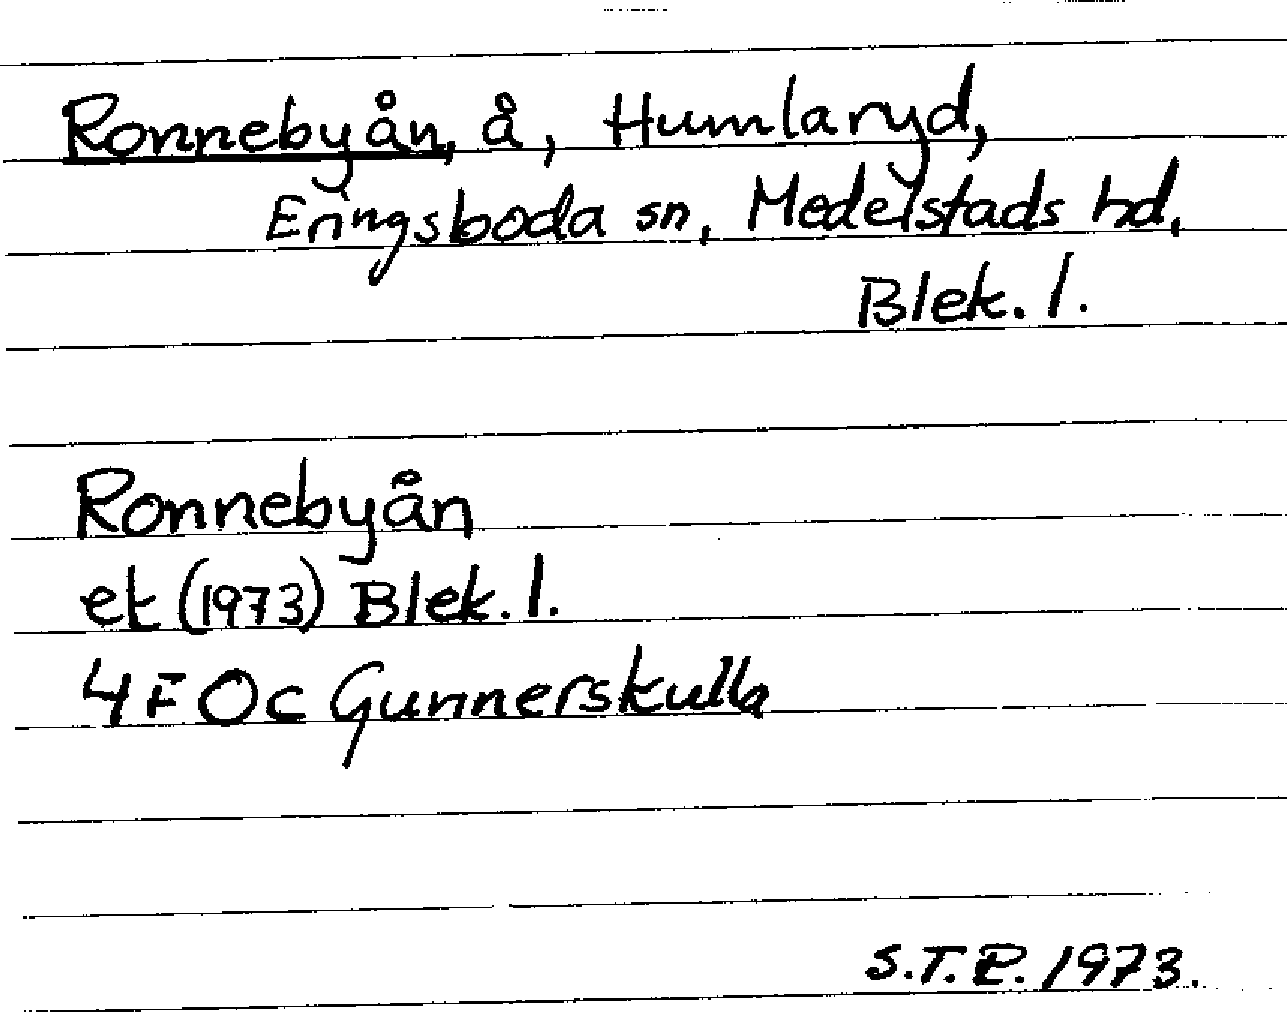 Ronnebyån, å, Humlaryd,
Eringsboda sn, Medelstads hd,
Blek. l.
Ronnebyån
ek (1973) Blek. l.
4F 0c Gunnerskulla
S.T.R. 1973.